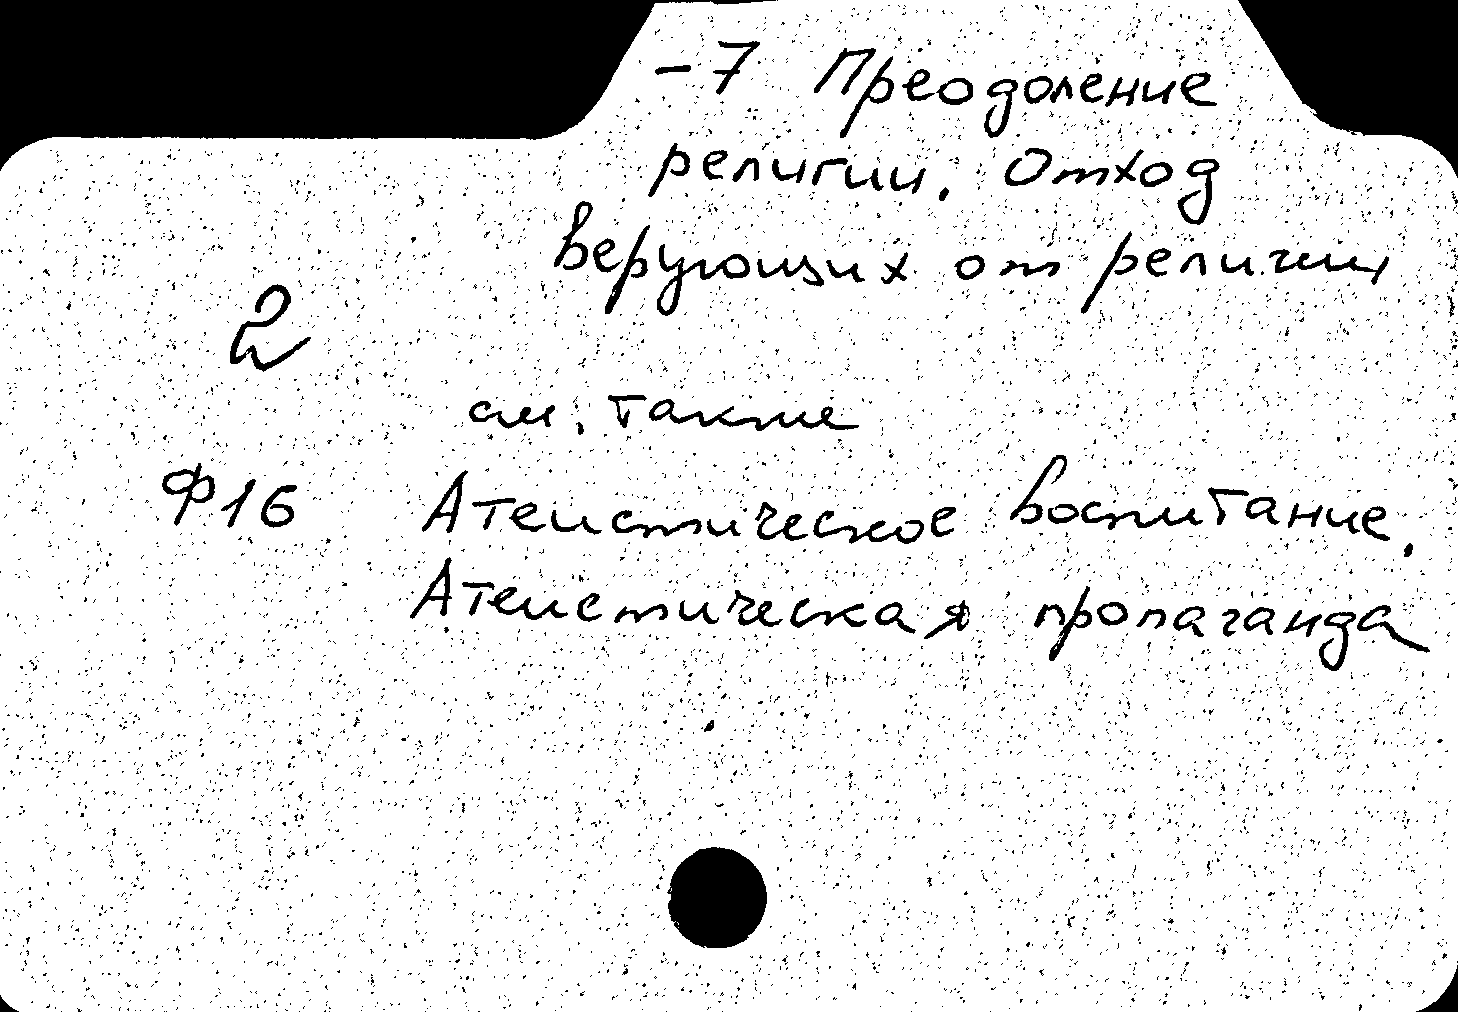 -7 Преодоление
религии. Отход
верующих от религии
2
см. также
Ф16 Атеистическое воспитание.
Атеистическая пропаганда